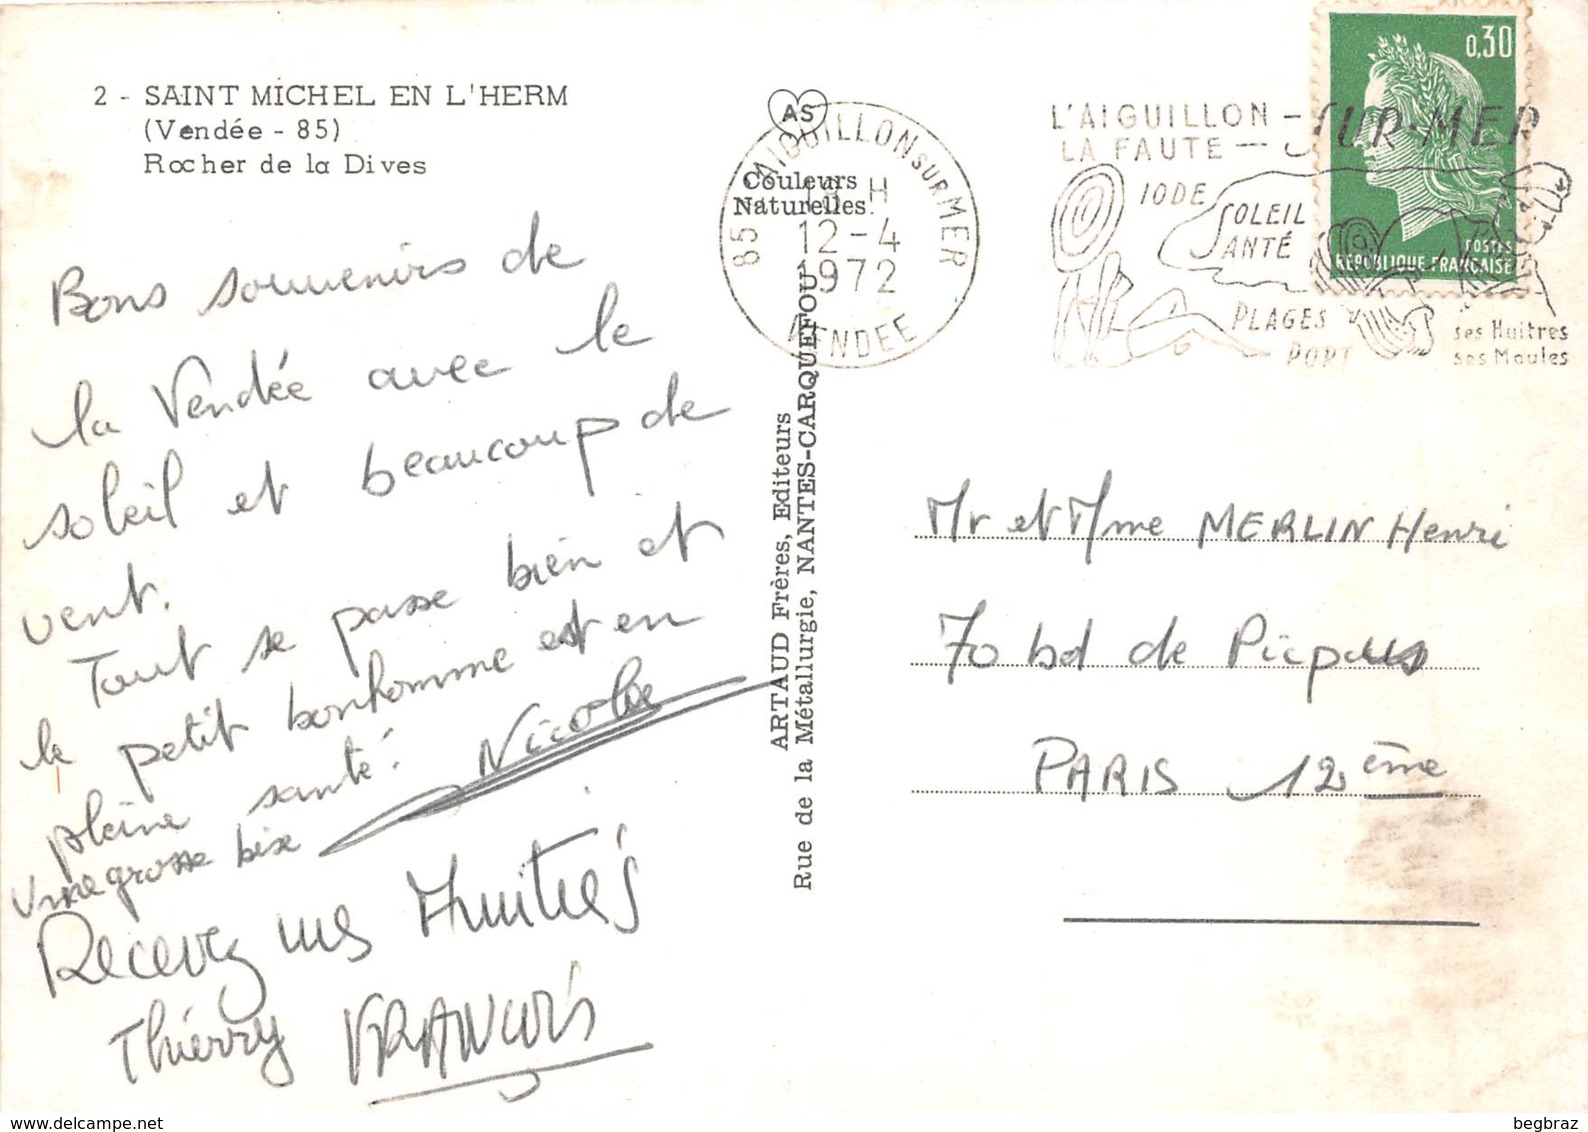 2 - SAINT MICHEL EN L'HERM
(Vendée - 85)
Rocher de la Dives
Bons souvenirs de
la Vendée avec le
soleil et beaucoup de
vent.
Tout se passe bien et
le petit bonhomme est en
pleine santé.
Une grosse bise Nicole
Recevez mes Amitiés
Thierry FRANCOIS
AS
Couleurs
Naturelles
ARTAUD Frères, Editeurs
Rue de la Métallurgie, NANTES-CARQUEFOU
85 AIGUILLON SUR MER
18 H
12-4
1972
VENDEE
L'AIGUILLON - SUR-MER
LA FAUTE -
IODE
SOLEIL
SANTÉ
PLAGES
PORT
ses Huitres
ses Moules
0,30
POSTES
RÉPUBLIQUE FRANÇAISE
Mr et Mme MERLIN Henri
70 bd de Picpus
PARIS 12ème
begbraz